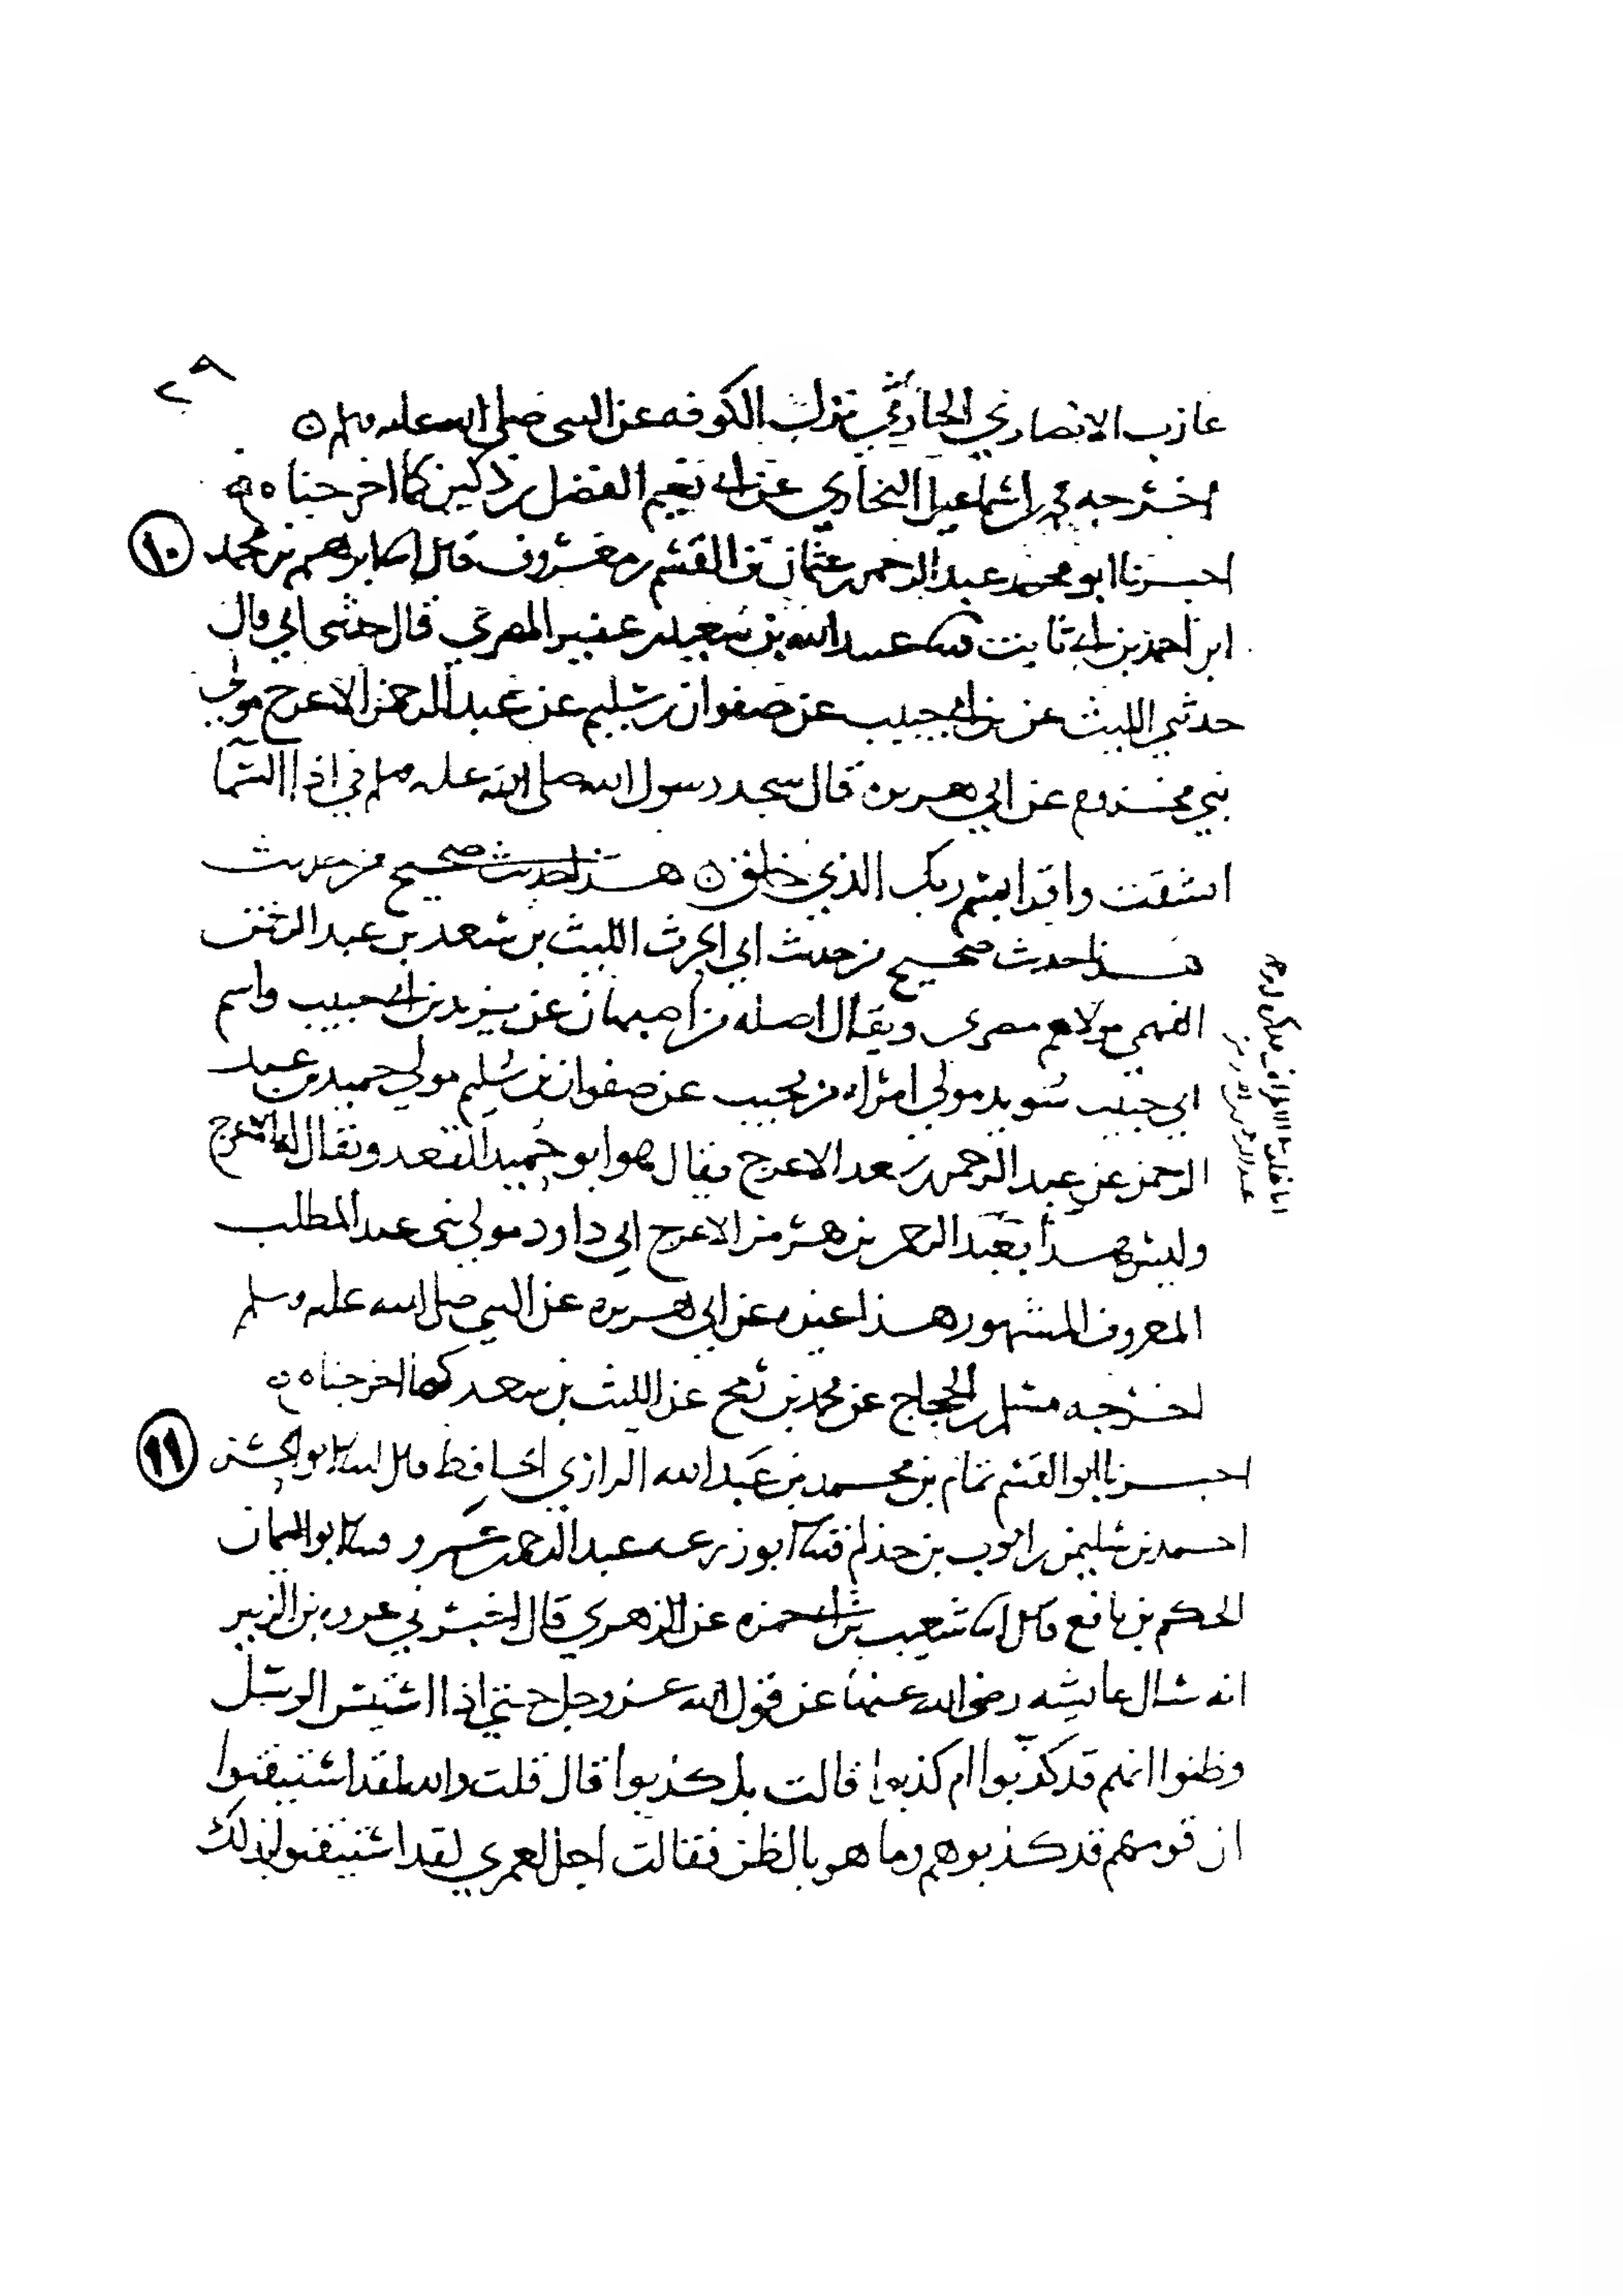 ٢٩
عازب الانصاري الحارثي نزل الكوفه عن النبي صلى الله عليه وسلم ن
اخرجه محمد بن اسماعيل البخاري عن ابي نعيم الفضل بن دكين كما اخرجناه
١٠
اخبرنا ابو محمد عبد الرحمن بن عثمان بن القسم بن معروف قال انبا ابرهيم بن محمد
ابن احمد بن ابي ثابت ثنا عبيد الله بن سعيد بن عفير المصري قال حدثني ابي قال
حدثني الليث عن بن ابي حبيب عن صفوان بن سليم عن عبد الرحمن الاعرج مولى
بني مخزوم عن ابي هريرة قال سجد رسول الله صلى الله عليه وسلم في اذا السما
انشقت واقرا بسم ربك الذي خلق ن هذا حديث صحيح من حديث
هذا حديث صحيح من حديث ابي الحرث الليث بن سعد بن عبد الرحمن
الفهمي مولاهم مصري ويقال اصله من اصبهان عن يزيد بن ابي حبيب واسم
ابي حبيب سويد مولى امراه من تجيب عن صفوان بن سليم مولى حميد بن عبد
الرحمن عن عبد الرحمن بن سعد الاعرج فقال هو ابو حميد المقعد ويقال له الاعرج
وليس هذا بعبد الرحمن بن هرمز الاعرج ابي داود مولى بني عبد المطلب
المعروف المشهور هذا غيره عن ابي هريره عن النبي صلى الله عليه وسلم
اخرجه مسلم بن الحجاج عن محمد بن رمح عن الليث بن سعد كما اخرجناه
١١
اخبرنا ابو القسم تمام بن محمد بن عبد الله الرازي الحافظ قال انبا ابو الحسن
احمد بن سليمن بن ايوب بن حذلم ثنا ابو زرعه عبد الرحمن بن عمرو ثنا ابو اليمان
الحكم بن نافع قال انبا شعيب بن ابي حمزه عن الزهري قال اخبرني عروه بن الزبير
انه سال عايشه رضي الله عنها عن قول الله عز وجل حتى اذا استيس الرسل
وظنوا انهم قد كذبوا ام كذبوا قالت بل كذبوا قال قلت والله لقد استيقنوا
ان قومهم قد كذبوهم وما هو بالظن فقالت اجل لعمري لقد استيقنوا بذلك